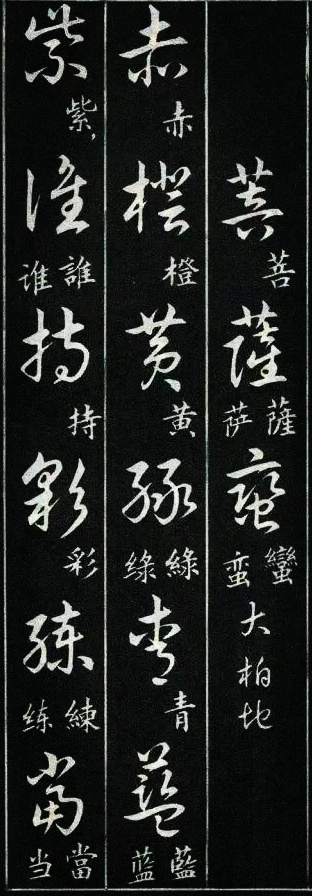 菩菩薩薩萨蠻蠻蛮大柏地
赤赤橙橙黄黄綠綠绿青青藍藍蓝
紫紫,誰誰谁持持彩彩練練练當當当